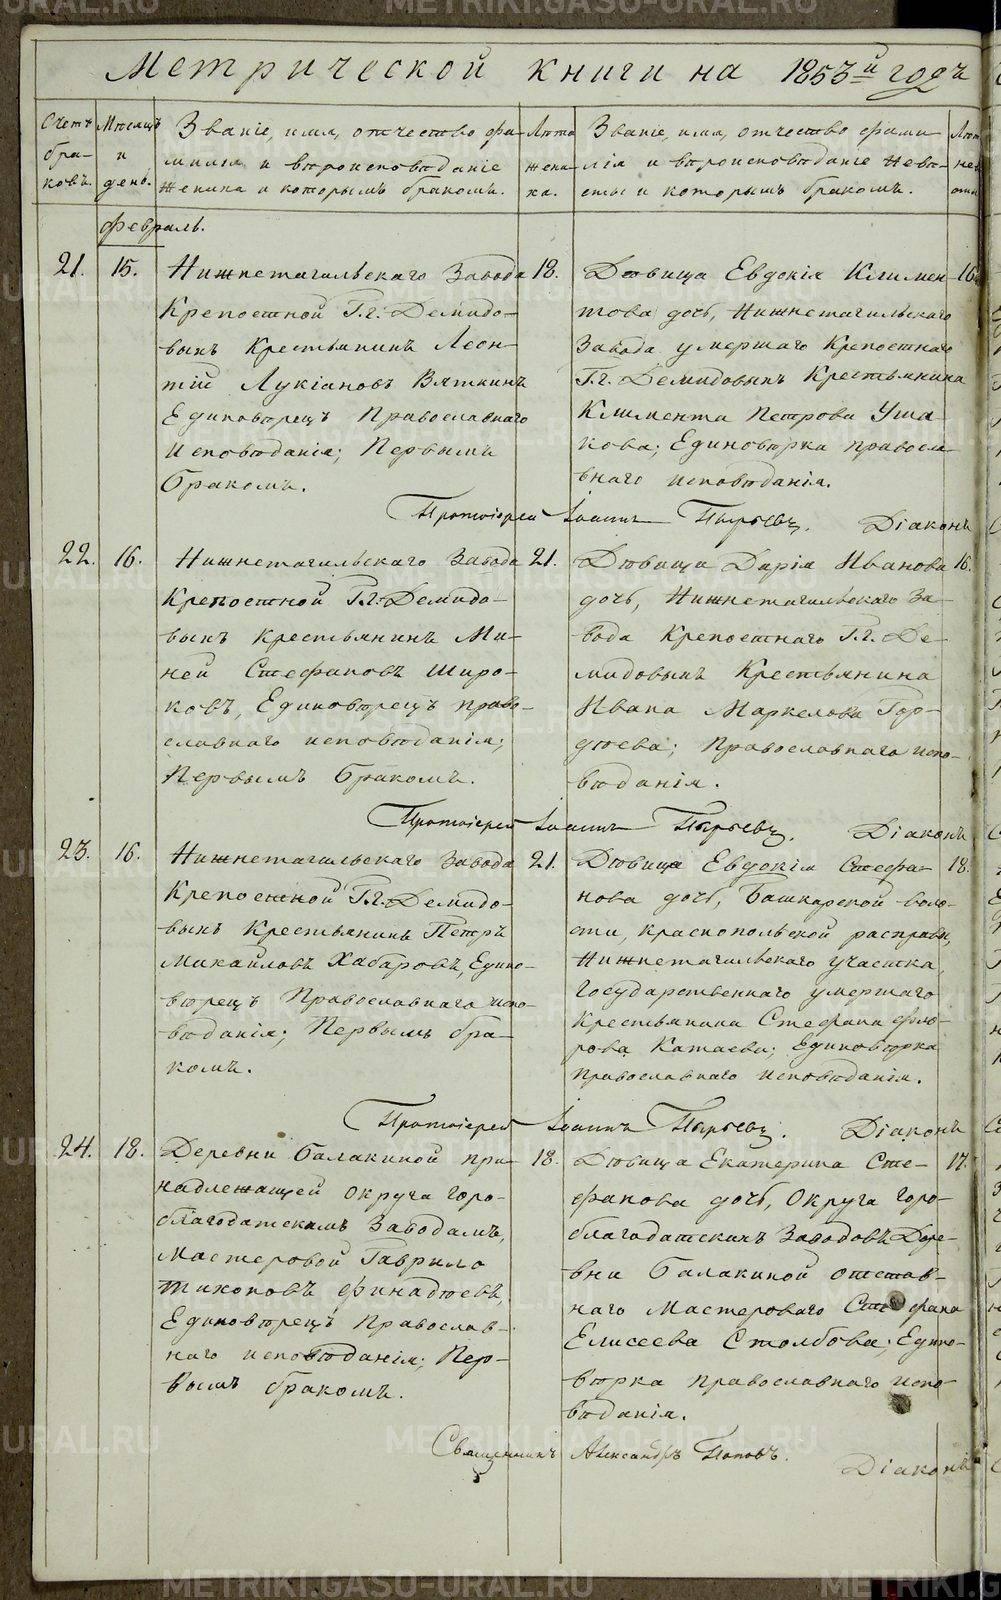 Метрической книги на 1853й годъ
Счетъ браковъ.
Месяцъ и день.
Званіе, имя, отчество, фамилія и вѣроисповѣданіе жениха и которымъ бракомъ.
Лета жениха.
Званіе, имя, отчество фамилія и вѣроисповѣданіе невесты и которымъ бракомъ.
Февраль.
21.
15.
Нижнетагильскаго Завода
Крепостной Г.г. Демидо-
выхъ Крестьянинъ Леон-
тій Лукіановъ Вяткинъ
Единовѣрецъ Православнаго
Исповѣданія; Первымъ
бракомъ.
18.
Дѣвица Евдокія Климен-
това дочь, Нижнетагильскаго
Завода умершаго Крепостнаго
Г.г. Демидовыхъ Крестьянина
Климента Петрова Уша-
кова; Единовѣрка правосла-
внаго исповѣданія.
16.
Протоіерей Іоаннъ Пырьевъ. Діаконъ
22.
16.
Нижнетагильскаго Завода
Крепостной Г.г. Демидо-
выхъ Крестьянинъ Ми-
ней Стефановъ Широ-
ковъ, Единовѣрецъ право-
славнаго исповѣданія;
Первымъ бракомъ.
21.
Дѣвица Дарія Иванова
дочь, Нижнетагильскаго За-
вода Крепостнаго Г.г. Де-
мидовыхъ Крестьянина
Ивана Маркелова Гор-
дѣева; Православнаго испо-
вѣданія.
16.
Протоіерей Іоаннъ Пырьевъ. Діаконъ
23.
16.
Нижнетагильскаго Завода
Крепостной Г.г. Демидо-
выхъ Крестьянинъ Петръ
Михайловъ Хабаровъ, Едино-
вѣрецъ Православнаго испо-
вѣданія; Первымъ бра-
комъ.
21.
Дѣвица Евдокія Стефа-
нова дочь, Башкарской воло-
сти, Краснопольской расправы,
Нижнетагильскаго участка,
Государственнаго умершаго
Крестьянина Стефана Фло-
рова Катаева; Единовѣрка
православнаго исповѣданія.
18.
Протоіерей Іоаннъ Пырьевъ. Діаконъ
24.
18.
Деревни Балакиной при-
надлежащей округа Горо-
благодатскимъ Заводамъ,
Мастеровой Гаврило
Тихоновъ Финадѣевъ,
Единовѣрецъ Православ-
наго исповѣданія; Пер-
вымъ бракомъ.
18.
Дѣвица Екатерина Сте-
фанова дочь, Округа Горо-
благодатскихъ Заводовъ Дере-
вни Балакиной отстав-
наго Мастероваго Стефана
Елисеева Столбова; Едино-
вѣрка православнаго испо-
вѣданія.
17.
Священникъ Александръ Поповъ.
Діаконъ
METRIKI.GASO-URAL.RU